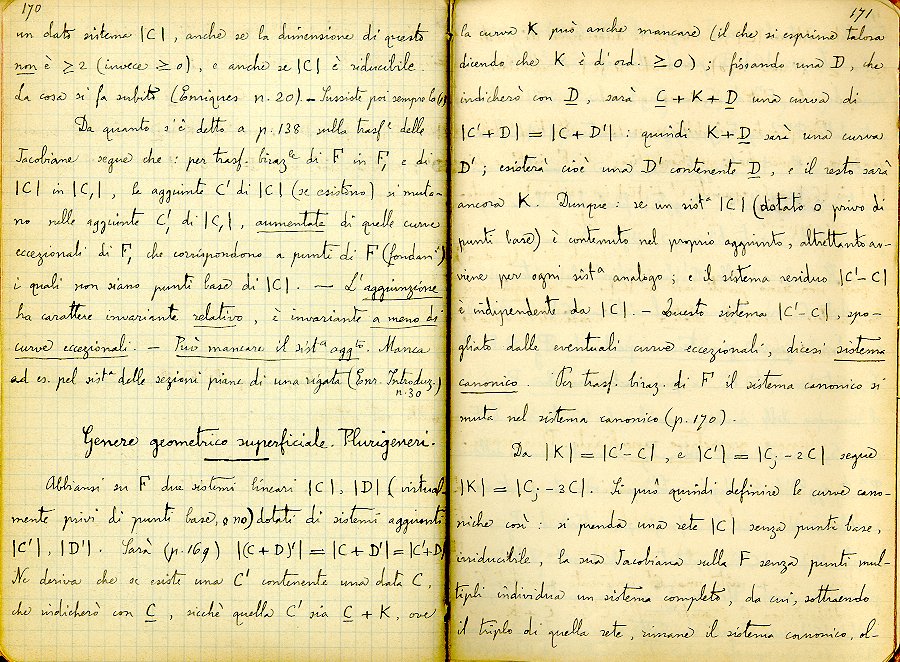 170
un dato sistema |C|, anche se la dimensione di questo
non è ≥ 2 (invece ≥ 0), e anche se |C| è riducibile.
La cosa si fa subito (Enriques n. 20). – Sussiste poi sempre la
Da quanto s'è detto a p. 138 sulla trasfᵉ delle
Jacobiane segue che: per trasf. birazˡᵉ di F in F₁ e di
|C| in |C₁|, le aggiunte C' di |C| (se esistono) si muta-
no nelle aggiunte C₁' di |C₁|, aumentate di quelle curve
eccezionali di F₁ che corrispondono a punti di F (fondamⁱ)
i quali non siano punti base di |C|. — L'aggiunzione
ha carattere invariante relativo, è invariante a meno di
curve eccezionali. — Può mancare il sistᵃ aggᵗᵒ. Manca
ad es. pel sistᵃ delle sezioni piane di una rigata (Enr. Introduz.
n. 30)
Genere geometrico superficiale. Plurigeneri.
Abbiansi su F due sistemi lineari |C|, |D| (virtual-
mente privi di punti base, o no) dotati di sistemi aggiunti
|C'|, |D'|. Sarà (p. 169) |(C+D)'| = |C+D'| = |C'+D|
Ne deriva che se esiste una C' contenente una data C,
che indicherò con C, sicchè quella C' sia C + K, ove
171
la curva K può anche mancare (il che si esprime talora
dicendo che K è d'ord. ≥ 0); fissando una D, che
indicherò con D, sarà C + K + D una curva di
|C'+D| = |C+D'| : quindi K+D sarà una curva
D'; esisterà cioè una D' contenente D, e il resto sarà
ancora K. Dunque: se un sistᵃ |C| (dotato o privo di
punti base) è contenuto nel proprio aggiunto, altrettanto av-
viene per ogni sistᵃ analogo; e il sistema residuo |C'-C|
è indipendente da |C|. – Questo sistema |C'-C|, spo-
gliato dalle eventuali curve eccezionali, dicesi sistema
canonico. Per trasf. biraz. di F il sistema canonico si
muta nel sistema canonico (p. 170).
Da |K| = |C'-C|, e |C'| = |Cⱼ-2C| segue
|K| = |Cⱼ-3C|. Si può quindi definire le curve cano-
niche così: si prenda una rete |C| senza punti base,
irriducibile, la sua Jacobiana sulla F senza punti mul-
tipli individua un sistema completo, da cui, sottraendo
il triplo di quella rete, rimane il sistema canonico, ol-